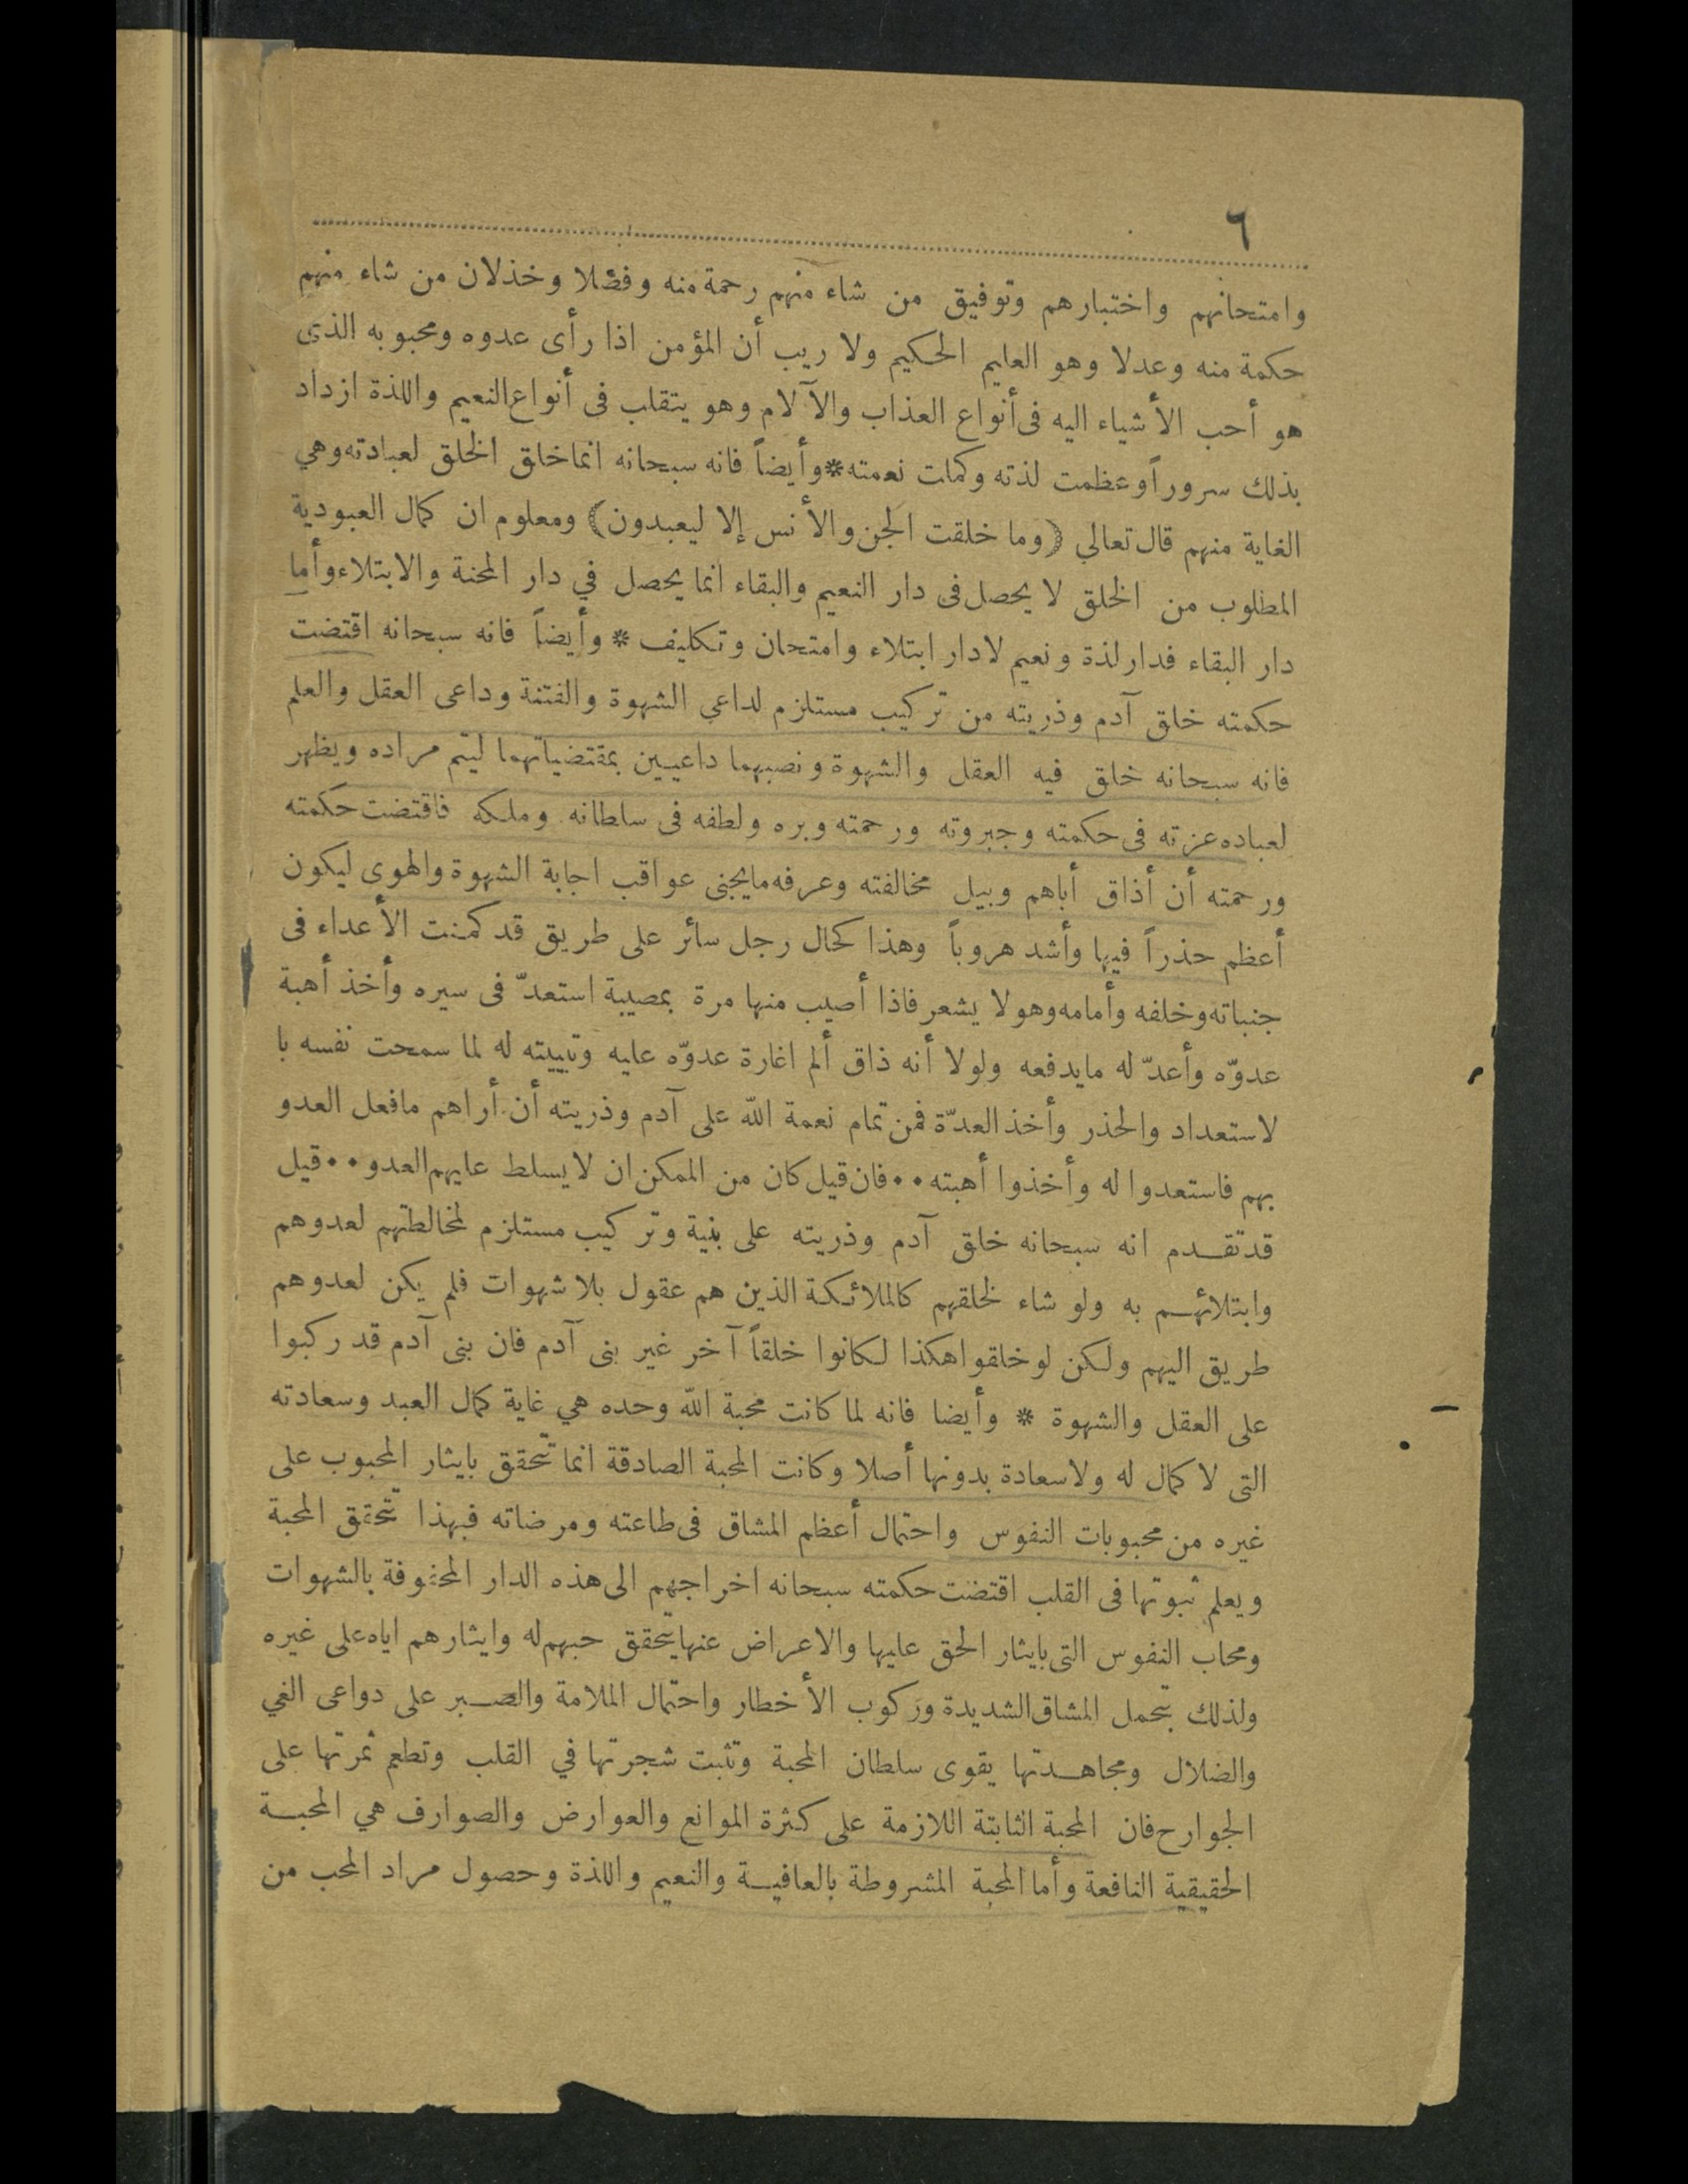 ٦
وامتحانهم واختبارهم وتوفيق من شاء منهم رحمة منه وفضلا وخذلان من شاء منهم
حكمة منه وعدلا وهو العليم الحكيم ولا ريب أن المؤمن اذا رأى عدوه ومحبوبه الذى
هو أحب الأشياء اليه فى أنواع العذاب والآلام وهو يتقلب فى أنواع النعيم واللذة ازداد
بذلك سروراً وعظمت لذته وكملت نعمته * وأيضاً فانه سبحانه انما خلق الخلق لعبادته وهي
الغاية منهم قال تعالي (وما خلقت الجن والأنس إلا ليعبدون) ومعلوم ان كمال العبودية
المطلوب من الخلق لا يحصل فى دار النعيم والبقاء انما يحصل في دار المحنة والابتلاء وأما
دار البقاء فدار لذة ونعيم لا دار ابتلاء وامتحان وتكليف * وأيضاً فانه سبحانه اقتضت
حكمته خلق آدم وذريته من تركيب مستلزم لداعي الشهوة والفتنة وداعى العقل والعلم
فانه سبحانه خلق فيه العقل والشهوة ونصبهما داعيين بمقتضياتهما ليتم مراده ويظهر
لعباده عزته فى حكمته وجبروته ورحمته وبره ولطفه فى سلطانه وملكه فاقتضت حكمته
ورحمته أن أذاق أباهم وبيل مخالفته وعرفه ما يجنى عواقب اجابة الشهوة والهوى ليكون
أعظم حذراً فيها وأشد هروباً وهذا كحال رجل سائر على طريق قد كمنت الأعداء فى
جنباته وخلفه وأمامه وهو لا يشعر فاذا أصيب منها مرة بمصيبة استعدّ فى سيره وأخذ أهبة
عدوّه وأعدّ له ما يدفعه ولولا أنه ذاق ألم اغارة عدوّه عليه وتبييته له لما سمحت نفسه با
لاستعداد والحذر وأخذ العدّة فمن تمام نعمة الله على آدم وذريته أن أراهم مافعل العدو
بهم فاستعدوا له وأخذوا أهبته •• فان قيل كان من الممكن ان لا يسلط عليهم العدو •• قيل
قد تقدم انه سبحانه خلق آدم وذريته على بنية وتركيب مستلزم لمخالطتهم لعدوهم
وابتلائهم به ولو شاء لخلقهم كالملائكة الذين هم عقول بلا شهوات فلم يكن لعدوهم
طريق اليهم ولكن لو خلقوا هكذا لكانوا خلقاً آخر غير بنى آدم فان بنى آدم قد ركبوا
على العقل والشهوة * وأيضا فانه لما كانت محبة الله وحده هي غاية كمال العبد وسعادته
التى لا كمال له ولا سعادة بدونها أصلا وكانت المحبة الصادقة انما تتحقق بايثار المحبوب على
غيره من محبوبات النفوس واحتمال أعظم المشاق فى طاعته ومرضاته فبهذا تتحقق المحبة
ويعلم ثبوتها فى القلب اقتضت حكمته سبحانه اخراجهم الى هذه الدار المحفوفة بالشهوات
ومحاب النفوس التى بايثار الحق عليها والاعراض عنها يتحقق حبهم له وايثارهم اياه على غيره
ولذلك بتحمل المشاق الشديدة وركوب الأخطار واحتمال الملامة والصبر على دواعى الغي
والضلال ومجاهدتها يقوى سلطان المحبة وتثبت شجرتها في القلب وتطعم ثمرتها على
الجوارح فان المحبة الثابتة اللازمة على كثرة الموانع والعوارض والصوارف هي المحبة
الحقيقية النافعة وأما المحبة المشروطة بالعافية والنعيم واللذة وحصول مراد المحب من